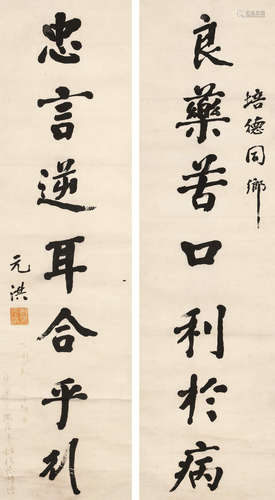 培德同鄉
良藥苦口利於病
忠言逆耳合乎
元洪